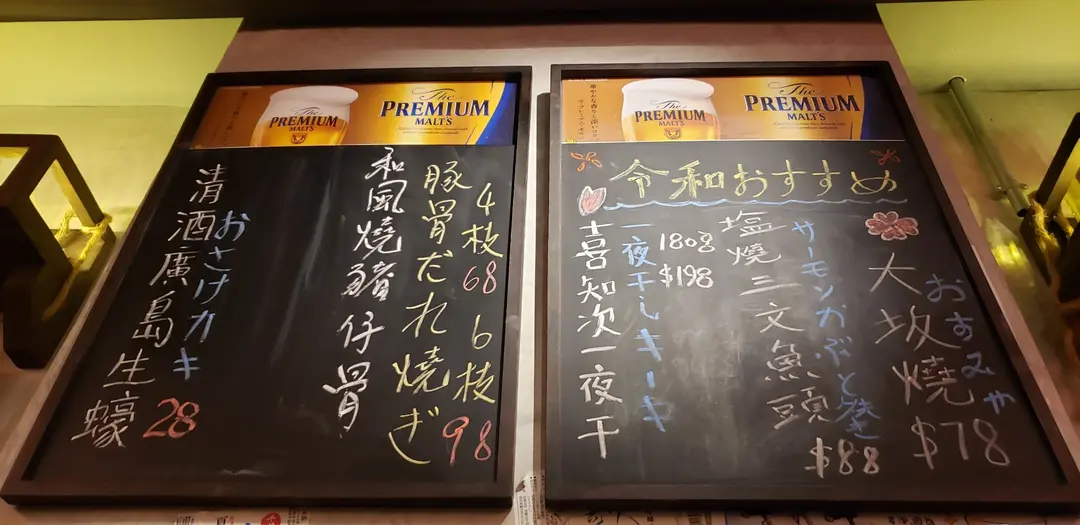 The
PREMIUM
MALT'S
The
PREMIUM
MALT'S
4枝
68
6枝
98
豚骨だれ燒ぎ
和風燒豬仔骨
おさけカキ
清酒廣島生蠔
28
The
PREMIUM
MALT'S
The
PREMIUM
MALT'S
令和おすすめ
おすみや
大坂燒
$78
サーモンかぶと塩
塩燒三文魚頭
$88
180g
$198
一夜干しキーキ
喜知次一夜干